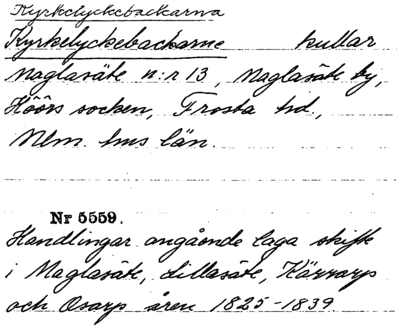 Kyrkelyckebackarna
Kyrkelyckebackarne kullar
Maglasäte n:r 13, Maglasäte by,
Höörs socken, Frosta hd,
Mlm. hus län.
Nr 5559.
Handlingar angående laga skifte
i Maglasäte, Lillasäte, Kärrarp
och Osarp åren 1825-1839